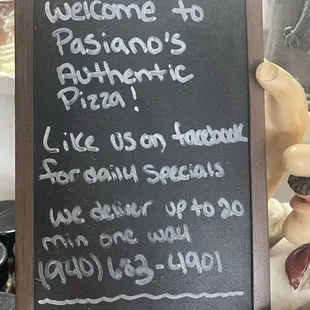 Welcome to
Pasiano's
Authentic
Pizza!
Like us on facebook
for daily specials
we deliver up to 20
min one way
(940) 683-4901